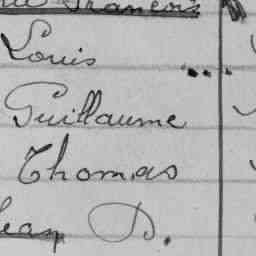 François
Louis
Guillaume
Thomas
Jean D.